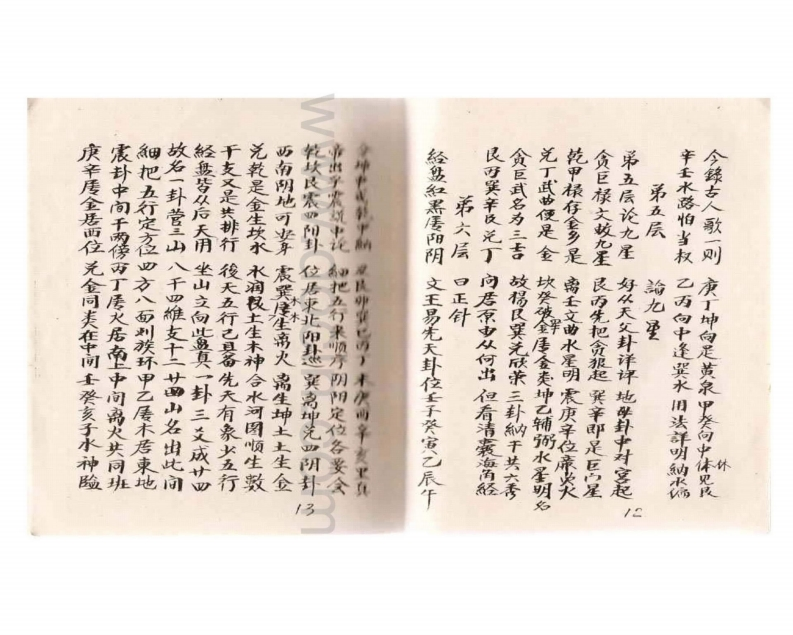 今錄古人歌一則 庚丁坤向是黃泉 甲癸向中休見艮
辛壬水路怕当权 乙丙向中逢巽水 用法詳明納水偏
第五层 論九星
第五层论九星 好从天父卦详评 地母卦中对宫起
贪巨禄文敘九星 艮丙先把贪狼起 巽辛即是巨门星
乾甲禄存金多是 離壬文曲水星明 震庚辛位廉災火
兑丁武曲便是金 坎癸破軍屬金类 坤乙辅弼水星明名
贪巨武名为三吉 故杨艮巽兑欣荣 三卦納干共六秀
艮丙巽辛及兑丁 向居京由从何出 但看清囊海角經
第六层 曰正針
經盘紅黑屬阳阴 文王易先天卦位 壬子癸寅八乙辰午
帝出乎震說中论 細把五行来順序 阴阳定位各要会
乾坎艮震四阳卦 位居東北阳卦巡 巽离坤兑四阴卦
西南阴地可安身 震巽屬木生离火 离生坤土土生金
兑乾是金生坎水 水润艮土生木神 合水河图順生數
干支又是共排行 後天五行己具备 先天有象少五行
經盘皆从后天用 坐山立向此盘真 一卦三爻成廿四
故名一卦管三山 八千四維支十二 廿四山名出此间
細把五行定方位 四方八面列族环 甲乙屬木居東地
震卦中间千两傍 丙丁屬火居南上 中间离火共同班
庚辛屬金居西位 兑金同类在中间 壬癸亥子水神臨
13
12